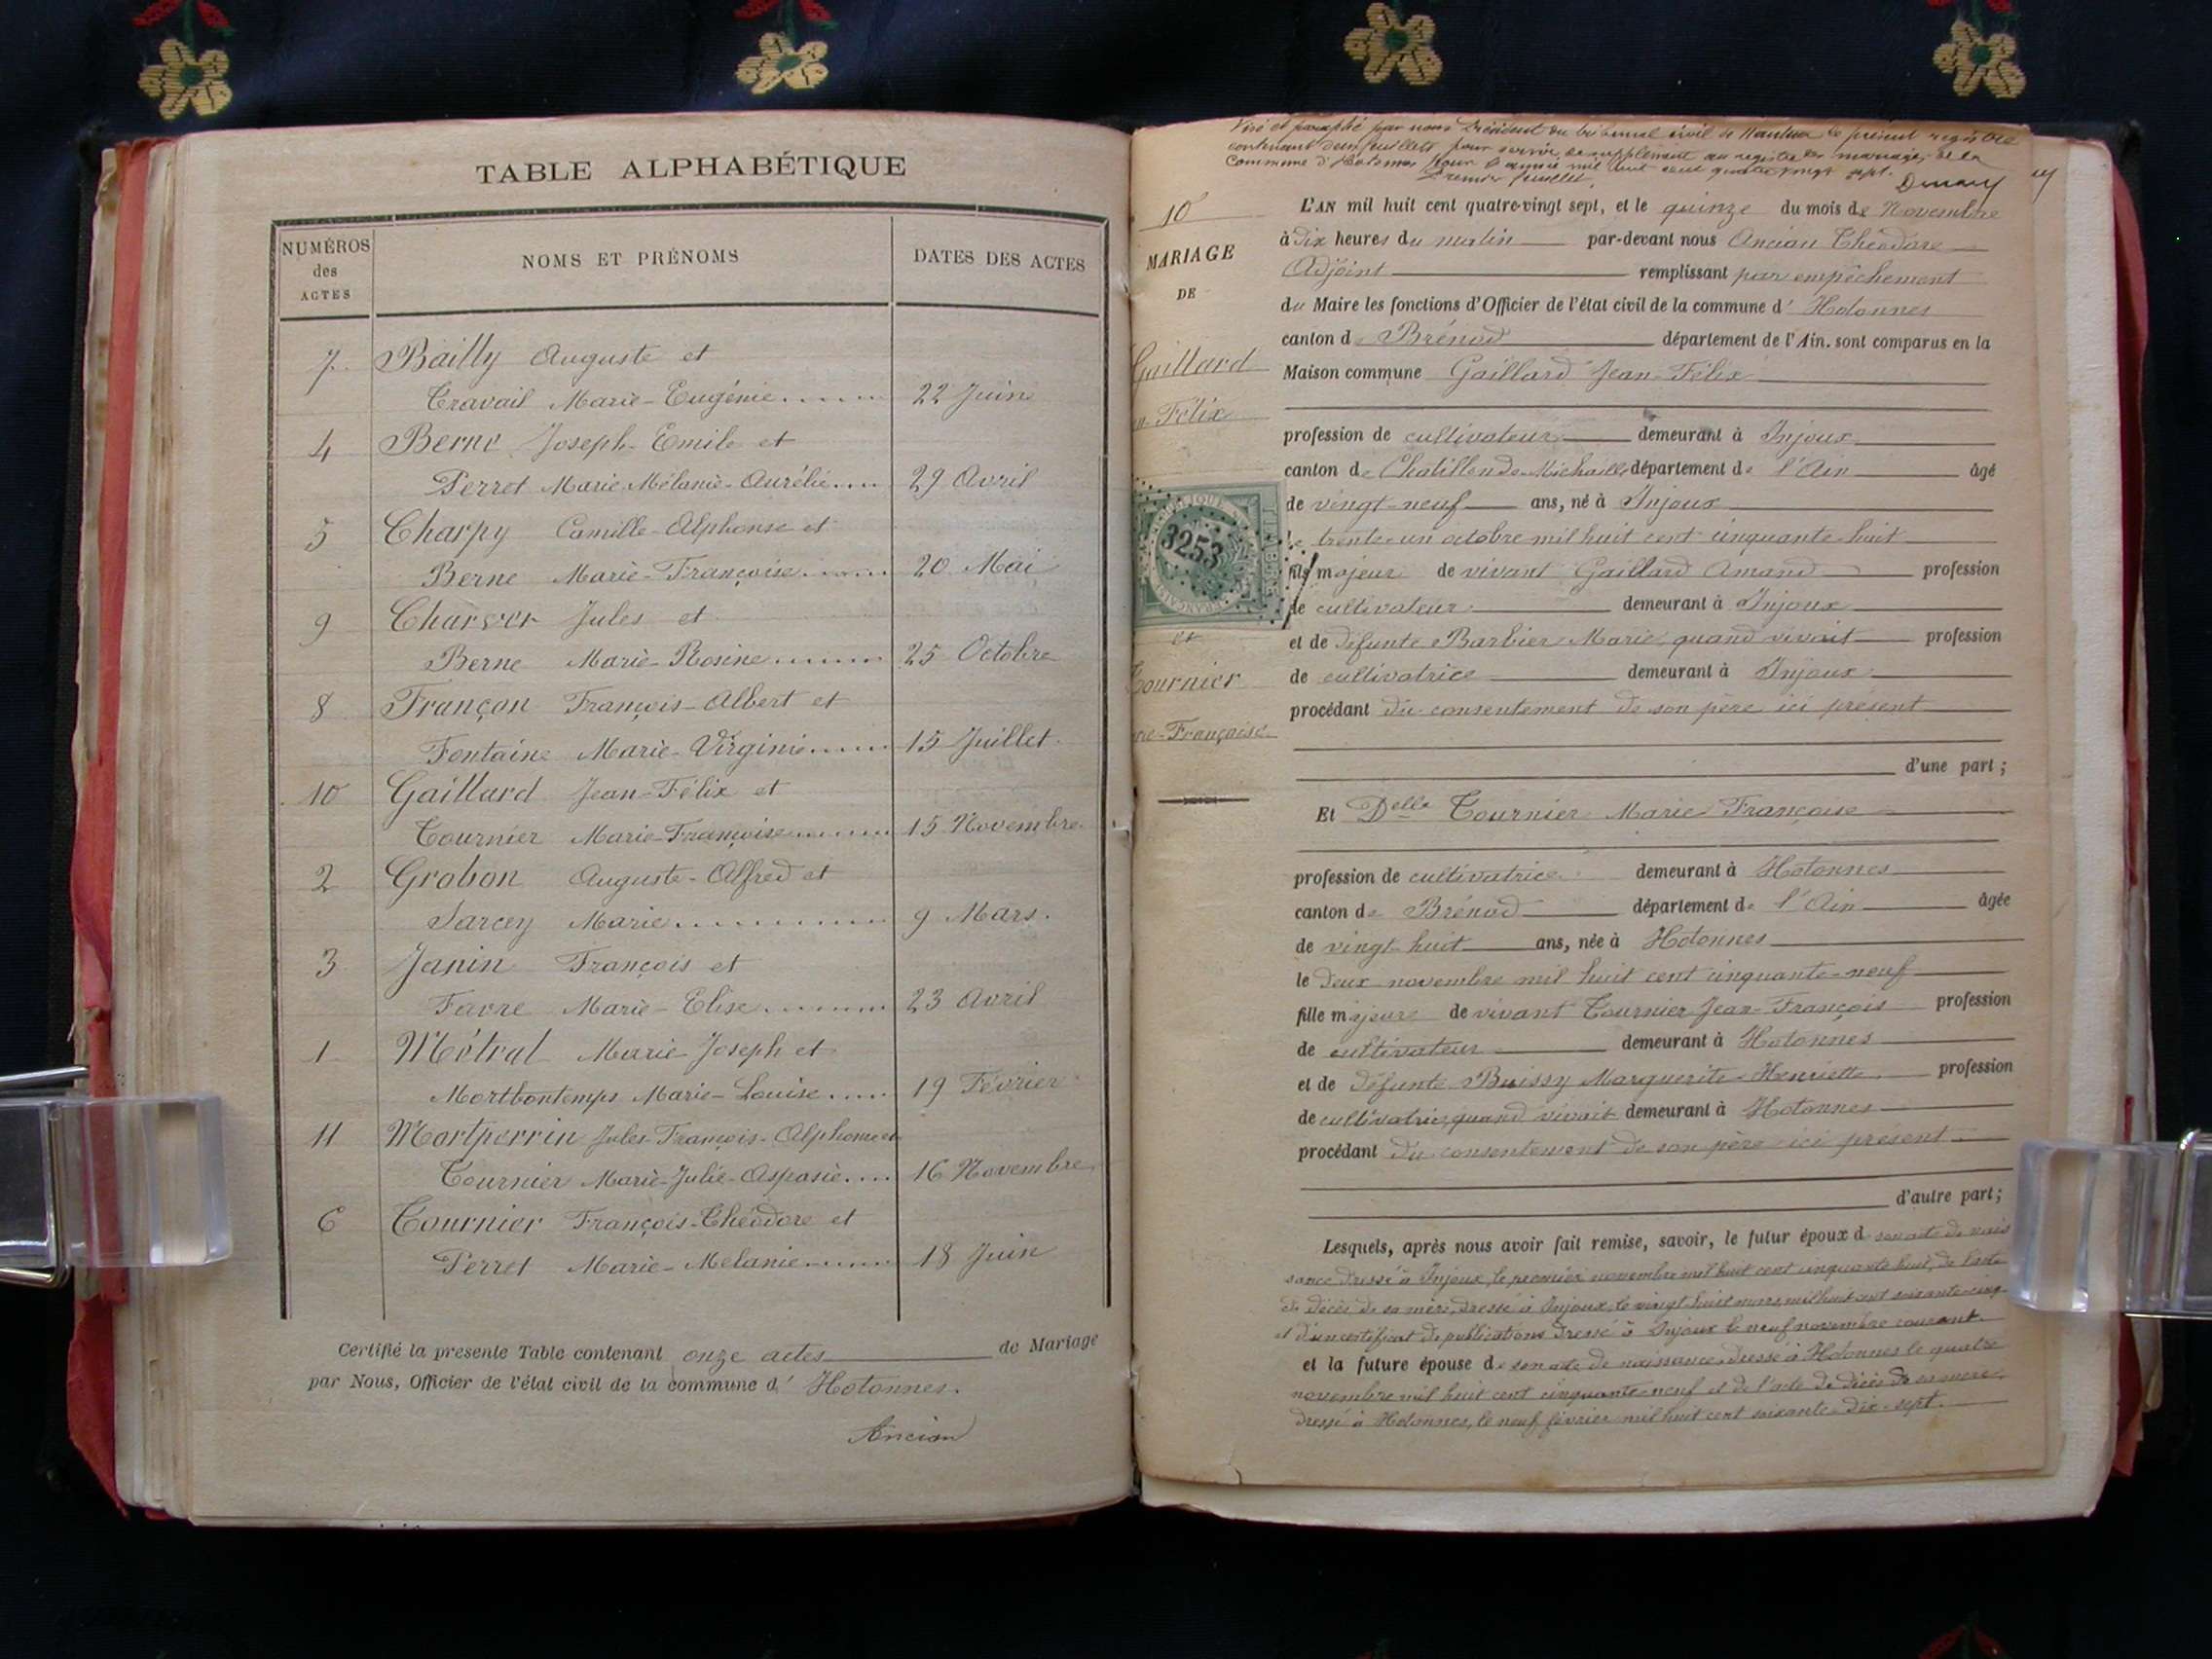 TABLE ALPHABÉTIQUE
NUMÉROS des ACTES
NOMS ET PRÉNOMS
DATES DES ACTES
7. Bailly Auguste et
Travail Marie-Eugénie 22 Juin
4 Berne Joseph-Emile et
Perret Marie-Mélanie-Aurélie 29 Avril
5 Charpy Camille-Alphonse et
Berne Marie-Françoise 20 Mai
9 Charver Jules et
Berne Marie-Rosine 25 Octobre
8 Françon François-Albert et
Fontaine Marie-Virginie 15 Juillet
10 Gaillard Jean-Félix et
Tournier Marie-Françoise 15 Novembre
2 Grobon Auguste-Alfred et
Sarcey Marie 9 Mars.
3 Janin François et
Favre Marie-Elise 23 Avril
1 Métral Marie-Joseph et
Mortbontemps Marie-Louise 19 Février
11 Mortperrin Jules-François-Alphonse et
Tournier Marie-Julie-Aspasie 16 Novembre
6 Tournier François-Théodore et
Perret Marie-Mélanie 18 Juin
Certifié la presente Table contenant onze actes de Mariage
par Nous, Officier de l'état civil de la commune d' Hotonnes.
Ancian
Visé et paraphé par nous Président du tribunal civil de Nantua le présent registre
contenant deux feuillets pour servir de supplément au registre des mariages de la
Commune d'Hotonnes pour l'année mil huit cent quatre vingt sept.
Premier feuillet.
10
MARIAGE
DE
Gaillard
n-Félix
3253
et
Tournier
rie-Françoise
L'AN mil huit cent quatre-vingt sept, et le quinze du mois de Novembre
à dix heures du matin par-devant nous Ancian Théodore
Adjoint remplissant par empêchement
du Maire les fonctions d'Officier de l'état civil de la commune d' Hotonnes
canton de Brénod département de l'Ain. sont comparus en la
Maison commune Gaillard Jean-Félix
profession de cultivateur demeurant à Injoux
canton de Chatillon-de-Michaille département de l'Ain âgé
de vingt-neuf ans, né à Injoux
le trente-un octobre mil huit cent cinquante-huit
fils majeur de vivant Gaillard Amand profession
de cultivateur demeurant à Injoux
et de défunte Barbier Marie quand vivait profession
de cultivatrice demeurant à Injoux
procédant du consentement de son père ici présent
d'une part;
Et Delle Tournier Marie Françoise
profession de cultivatrice demeurant à Hotonnes
canton de Brénod département de l'Ain âgée
de vingt-huit ans, née à Hotonnes
le deux novembre mil huit cent cinquante-neuf
fille majeure de vivant Tournier Jean-François profession
de cultivateur demeurant à Hotonnes
et de défunte Buissy Marguerite-Henriette profession
de cultivatrice, quand vivait demeurant à Hotonnes
procédant du consentement de son père ici présent
d'autre part;
Lesquels, après nous avoir fait remise, savoir, le futur époux de son acte de nais
sance dressé à Injoux, le premier novembre mil huit cent cinquante huit, de l'acte
de décès de sa mère, dressé à Injoux, le vingt huit mars mil huit cent soixante-cinq
et d'un certificat de publications dressé à Injoux le neuf novembre courant.
et la future épouse de son acte de naissance dressé à Hotonnes le quatre
novembre mil huit cent cinquante-neuf et de l'acte de décès de sa mère
dressé à Hotonnes, le neuf février mil huit cent soixante-dix-sept.